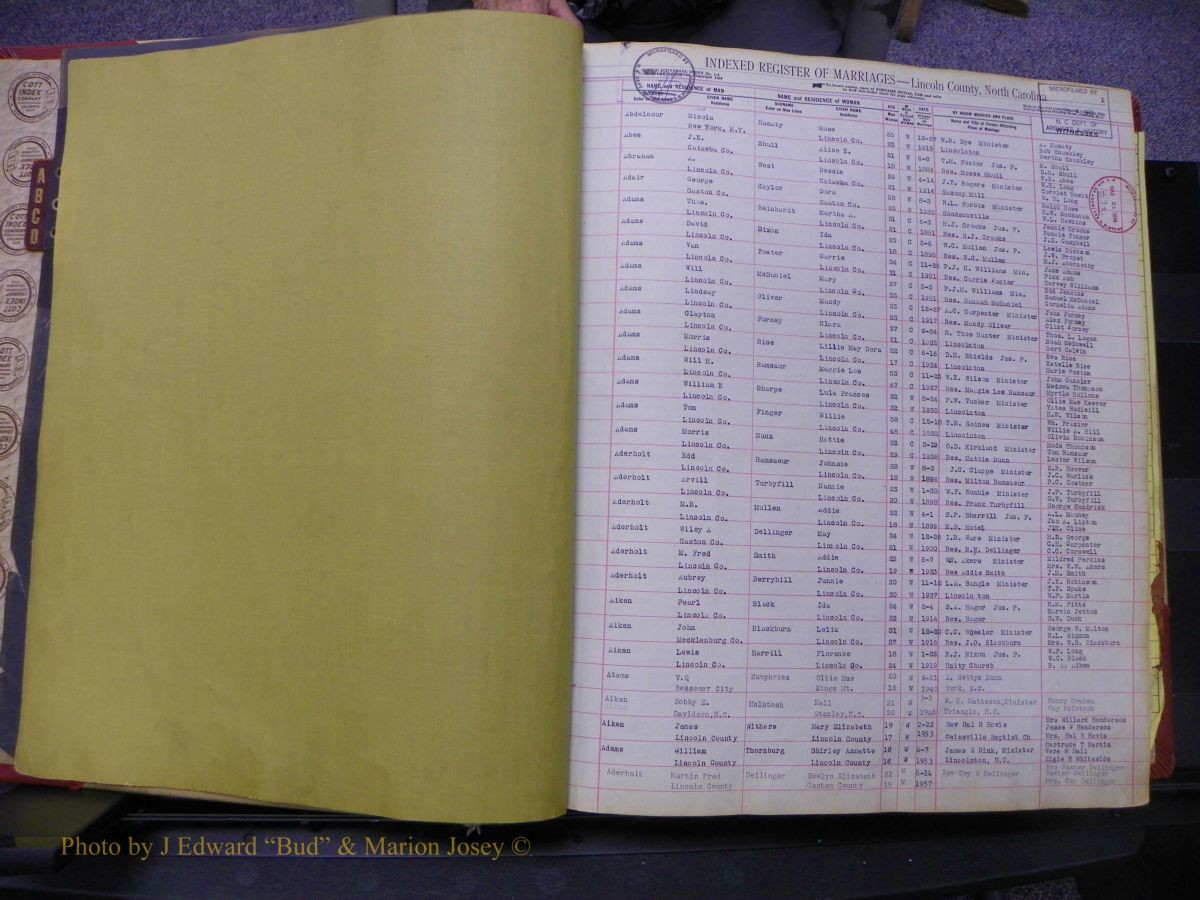 COTT
INDEX
COMPANY
A
B
C
D
MICROFILMED BY
INDEXED REGISTER OF MARRIAGES—Lincoln County, North Carolina
MICROFILMED BY
N. C. DEPT. OF
ARCHIVES & HISTORY
1
NAME and RESIDENCE OF MAN NAME and RESIDENCE OF WOMAN AGE DATE BY WHOM MARRIED AND PLACE WITNESSES
SURNAME GIVEN NAME SURNAME GIVEN NAME Name and Title of Person Officiating
Residence Enter on Man Lines Residence Place of Marriage
Abdelnour Nicola Hamaty Rose 35 W 12-27 T.R. Dye Minister A. Hamaty
New York, N.Y. Lincoln Co. 23 W 1913 Lincolnton Bob Knuckley
Bertha Knuckley
Abee J.E. Shull Alice E. 21 W 6-8 T.M. Foster Jus. P. M. Shull
Catawba Co. Lincoln Co. 18 W 1884 Res. Moses Shull D.R. Shull
W.H. Abee
Abraham A. West Bessie W 4-14 J.T. Rogers Minister W.H. Long
Lincoln Co. Catawba Co. 21 W 1914 Saxony Mill
G. R. Long
Adair George Kaylor Dora 28 W 8-3 R.L. Forbis Minister Ralph Howe
Gaston Co. Gaston Co. W 1935 Goodsonville H.W. Buchanan
W.L. Hawkins
Adams Thos. Reinhardt Martha A. C 6-3 H.J. Crooks Jus. P. Jennie Crooks
Lincoln Co. Lincoln Co. 21 C 1891 Res. H.J. Crooks Fannie Finger
J.D. Campbell
Adams David Dixon Ida 23 C 2-6 W.C. Mullen Jus. P. Lewis Dickson
Lincoln Co. Lincoln Co. 18 C 1896 Res. W.C. Mullen J.W. Propst
M.J. Abernathy
Adams Van Foster Carrie 24 C P.J. H. Williams Min. Jake Adams
Lincoln Co. Lincoln Co. 21 C 1901 Res. Carrie Foster Pink Ash
Harvey Williams
Adams Will McDaniel Mary 27 C 3-3 P.J.H. Williams Min. Edd Jenkins
Lincoln Co. Lincoln Co. C 1901 Res. Hannah McDaniel Samuel McDaniel
Cornelia Adams
Adams Lindsay Oliver Mandy 23 C 12-27 A.C. Carpenter Minister John Forney
Lincoln Co. Lincoln Co. C 1917 Res. Mandy Oliver Alex Forney
Clint Forney
Adams Clayton Forney Clara 27 C 9-24 R. Thos Hunter Minister Thos. L. Logan
Lincoln Co. Lincoln Co. 21 C 1922 Lincolnton Noah McDowell
Bert Calvin
Adams Morris Rice Lillie May Dora 22 C 6-16 D.H. Shields Jus. P. Eva Rice
Lincoln Co. Lincoln Co. 17 C 1924 Lincolnton Estelle Rice
Marie Poston
Adams Will H. Ramsaur Maggie Lee 53 C 11-23 W.E. Wilson Minister John Cansler
Lincoln Co. Lincoln Co. 47 C 1927 Res. Maggie Lee Ramsaur Medova Thompson
Myrtle Hollons
Adams William E Sharpe Lula Frances 22 W 8-24 P.W. Tucker Minister Ollie Mae Keever
Lincoln Co. Lincoln Co. 22 W 1930 Lincolnton Yates Rudisill
H.W. Wilson
Adams Tom Finger Willie 58 C 12-18 T.R. Goines Minister Wm. Frazier
Lincoln Co. Lincoln Co. 48 C 1930 Lincolnton Willie A. Hill
Olivia Robinson
Adams Morris Nunn Hattie 23 C 2-19 G.D. Kirkland Minister Mode Thompson
Lincoln Co. Lincoln Co. 29 C 1938 Res. Hattie Nunn Tom Ramseur
Lester Wilson
Aderholt Edd Ramsaeur Johnsie 28 W 8-2 J.C. Cluppe Minister D.R. Hoover
Lincoln Co. Lincoln Co. 18 W 1896 Res. Milton Ramsaeur J.C. Warlick
P.C. Costner
Aderholt Arvill Turbyfill Nannie 23 W 1-30 W.F. Womble Minister J.P. Turbyfill
Lincoln Co. Lincoln Co. 20 W 1898 Res. Frank Turbyfill G.W. Turbyfill
George Hendrick
Aderholt M.B. Mullen Addie 22 W 4-1 S.P. Sherrill Jus. P. A.L. Mauney
Lincoln Co. Lincoln Co. 18 W 1899 N.S. Hotel Jno A. Lipton
J.M. Cline
Aderholt Wiley A Dellinger May 24 W 12-26 I.R. Ware Minister H.D. George
Gaston Co. Lincoln Co. 21 W 1900 Res. N.W. Dellinger C.H. Carpenter
C.C. Cornwell
Aderholt M. Fred Smith Addie 23 W 5-7 WW. Akers Minister Mildred Perkins
Lincoln Co. Lincoln Co. 19 W 1923 Res Addie Smith Mrs. W.W. Akers
J.H. Smith
Aderholt Aubrey Berryhill Junnie 20 W 11-12 L.A. Bangle Minister J.E. Robinson
Lincoln Co. Lincoln Co. 20 W 1927 Lincoln ton T.F. Spake
W.P. Martin
Aiken Pearl Black Ida 24 W 2-4 S.A. Hager Jus. P. R.M. Pitts
Lincoln Co. Lincoln Co. 22 W 1914 Res. Hager Marvin Jetton
S.W. Duck
Aiken John Blackburn Lelia 31 W 12-20 C.C. Wheeler Minister George W. Malton
Mecklenburg Co. Lincoln Co. 27 W 1916 Res. J.O. Blackburn R.L. Sigmon
Mrs. W.B. Blackburn
Aiken Lewis Harrill Florence 18 W 1-22 R.J. Nixon Jus. P. W.P. Long
Lincoln Co. Lincoln Co. 24 W 1919 Unity Church W.C. Black
R. A. Aiken
Adams V.Q Humphries Ollie Mae 20 W 9-21 E. Gettys Nunn
Bessemer City Kings Mt. 18 W 1940 York, S.C.
Aiken Bobby E. McIntosh Nell 21 W 3-2 W. S. Matheson,Minister Henry Graham
Davidson,N.C. Stanley,N.C. 20 W 1946 Triangle, N.C. Guy McIntosh
Aiken James Withers Mary Elizabeth 19 W 2-22 Rev Hal R Hovis Mrs Willard Henderson
Lincoln County Lincoln County 17 W 1953 Gainsville Baptist Ch Jesse W Henderson
Mrs. Hal R Hovis
Adams William Thornburg Shirley Annette 18 W 6-7 James E Rink, Minister Gertrude T Martin
Lincoln County Lincoln County 18 W 1953 Lincolnton, N.C. Vera W Hall
Elgie R Whiteside
Aderholt Martin Fred Dellinger Evelyn Elizabeth 22 W 6-14 Rev Coy H Dellinger Mrs Baxter Dellinger
Lincoln County Gaston County 19 W 1957 Baxter Dellinger
Mrs. Coy Dellinger
Photo by J Edward “Bud” & Marion Josey ©